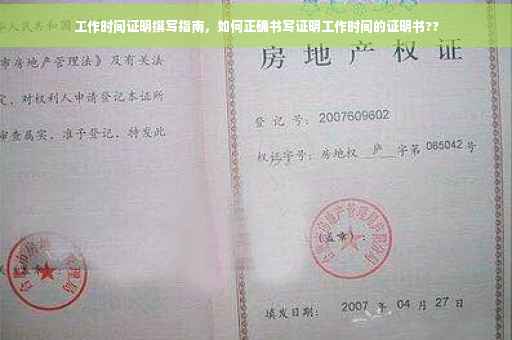 工作时间证明撰写指南，如何正确书写证明工作时间的证明书??
华人民共和国
市房地产管理法》及有关法
定，对权利人申请登记本证所
审查属实，准予登记，特发此
房地产权证
登记号：2007609602
权证字号：房地权 庐 字第 065042 号
(盖章)：
填发日期： 2007 年 04 月 27 日